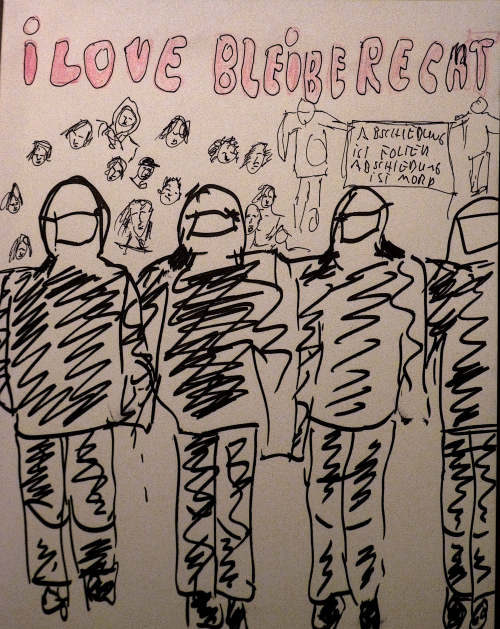 i LOVE BLEiBERECHT
ABSCHIEDUNG
iST FOLTER
ABSCHIEDUNG
iST MORD